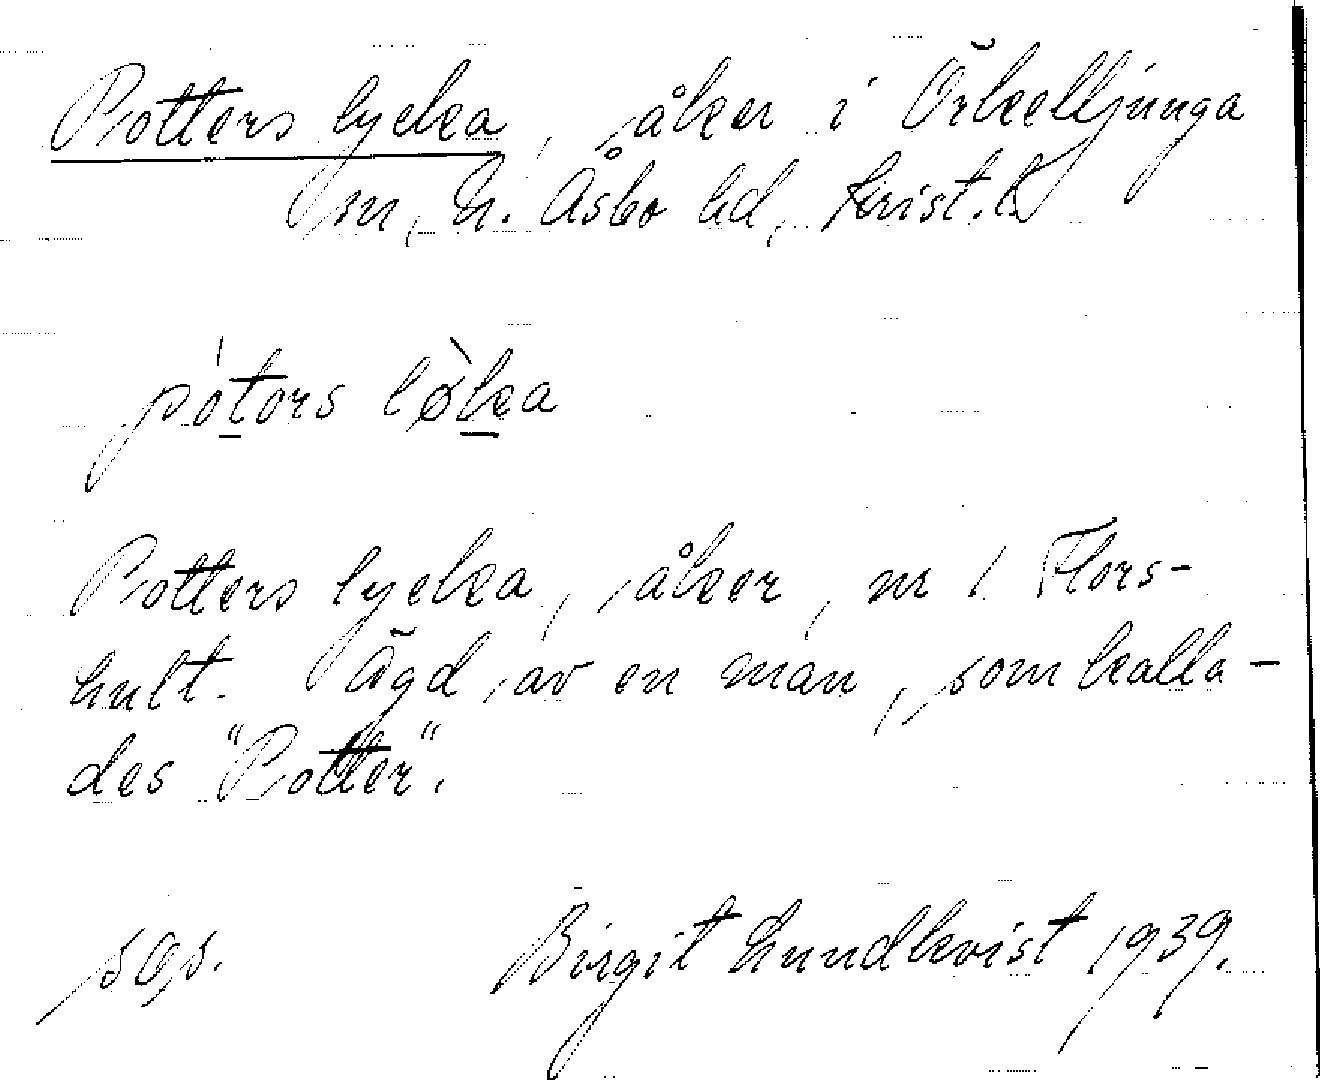 Potters lycka, åker i Örkelljunga
sn, N. Åsbo hd, Krist. l.
pótors lø̀ka
Potters lycka, åker, nr 1 Flors-
hult. Ägd av en man, som kalla-
des "Potter".
Birgit Lundkvist 1939.